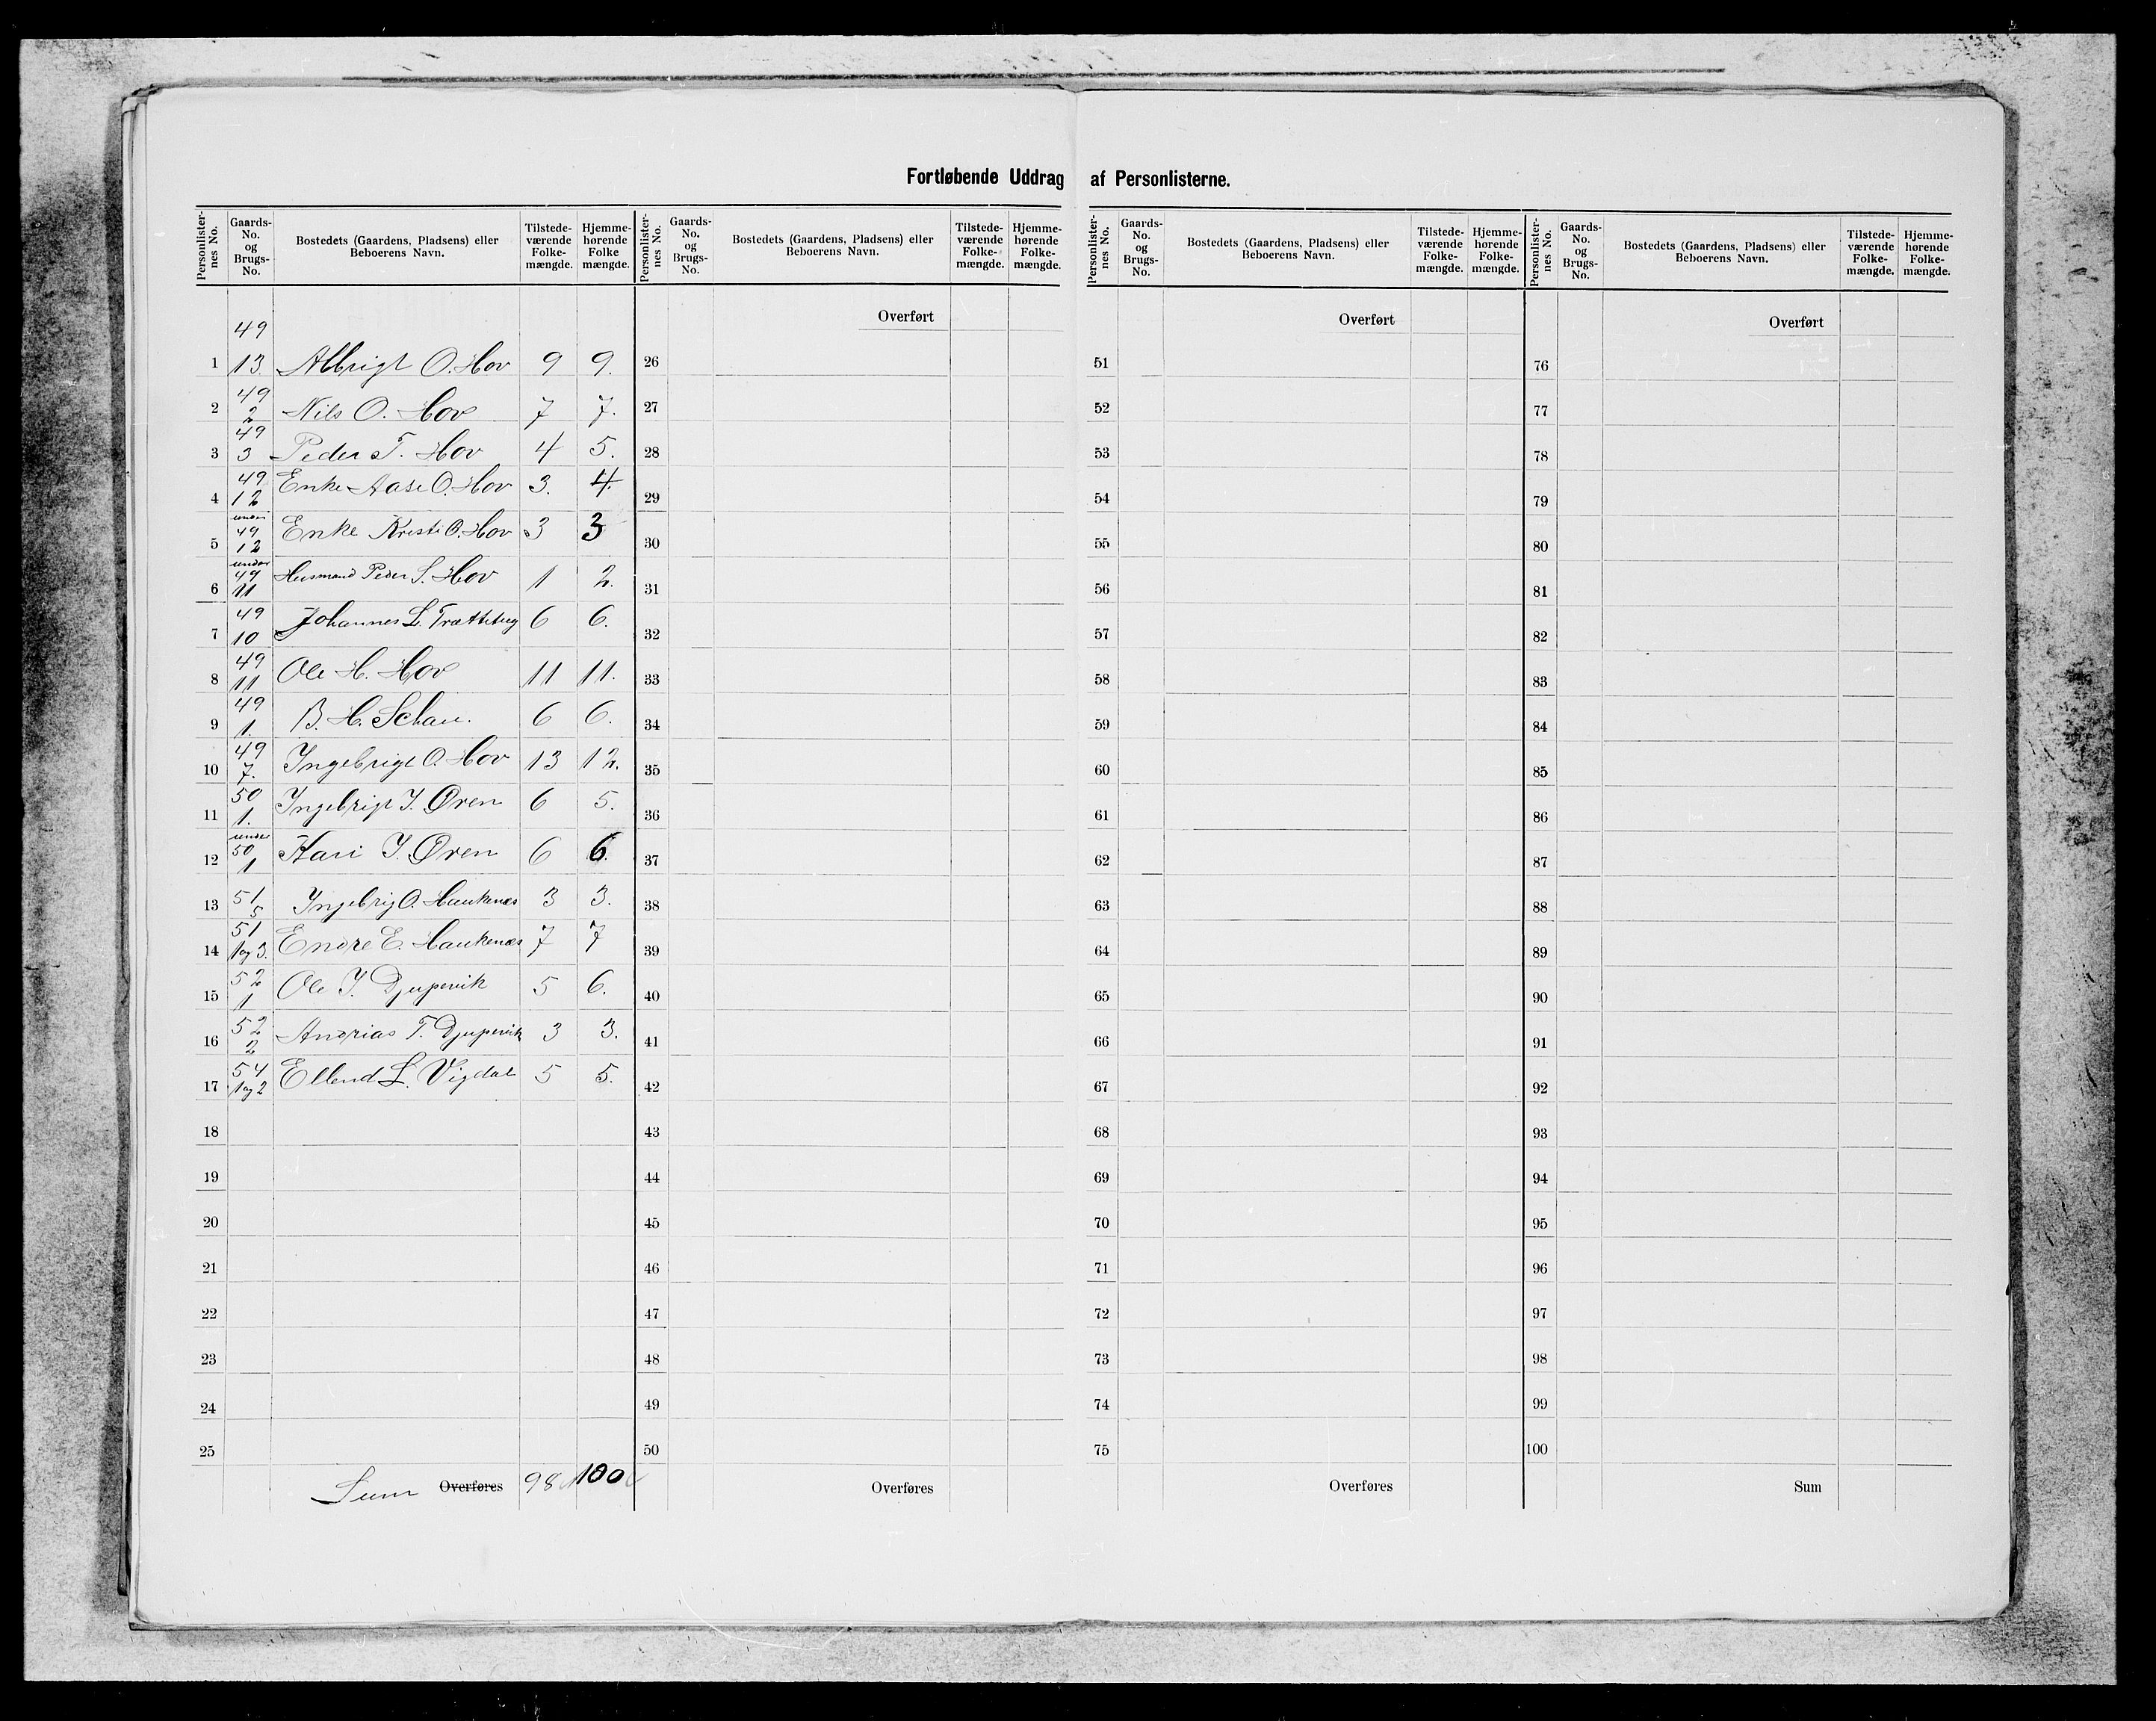 Fortløbende Uddrag af Personlisterne.
Personlister-nes No. | Gaards-No. og Brugs-No. | Bostedets (Gaardens, Pladsens) eller Beboerens Navn. | Tilstede-værende Folke-mængde. | Hjemme-hørende Folke mængde. | Personlister-nes No. | Gaards-No. og Brugs-No. | Bostedets (Gaardens, Pladsens) eller Beboerens Navn. | Tilstede-værende Folke-mængde. | Hjemme-hørende Folke-mængde. | Personlister-nes No. | Gaards-No. og Brugs-No. | Bostedets (Gaardens, Pladsens) eller Beboerens Navn. | Tilstede-værende Folke-mængde. | Hjemme-hørende Folke-mængde. | Personlister-nes No. | Gaards-No. og Brugs-No. | Bostedets (Gaardens, Pladsens) eller Beboerens Navn. | Tilstede-værende Folke-mængde. | Hjemme-hørende Folke-mængde.
Overført Overført Overført
1 49 13 Albrigt O. Hov 9 9. 26 51 76
2 49 2 Nils O. Hov 7 7. 27 52 77
3 49 3 Peder T. Hov 4 5. 28 53 78
4 49 12 Enke Aase O. Hov 3. 4. 29 54 79
5 under 49 12 Enke Kristi O. Hov 3 3 30 55 80
6 under 49 11 Husmand Peder S. Hov 1 2. 31 56 81
7 49 10 Johannes L. Trætteteig 6 6. 32 57 82
8 49 11 Ole H. Hov 11 11. 33 58 83
9 49 1. B. H. Schau. 6 6. 34 59 84
10 49 7. Ingebrigt O. Hov 13 12. 35 60 85
11 50 1. Ingebrigt I. Øren 6 5. 36 61 86
12 under 50 1 Kari I. Øren 6 6. 37 62 87
13 51 5 Ingebrig O. Haukenæs 3 3. 38 63 88
14 51 1 og 3. Endre E. Haukenæs 7 7 39 64 89
15 52 1 Ole I. Djupevik 5 6. 40 65 90
16 52 2 Andrias T. Djupevik 3 3. 41 66 91
17 54 1 og 2 Ellend L. Vigdal 5 5. 42 67 92
18 43 68 93
19 44 69 94
20 45 70 95
21 46 71 96
22 47 72 97
23 48 73 98
24 49 74 99
25 50 75 100
Sum Overføres 98 100 Overføres Overføres Sum